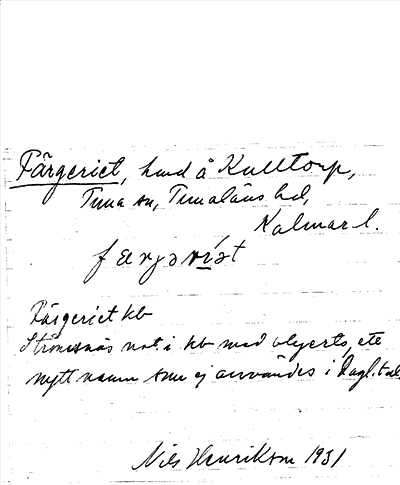 Färgeriet, hmd å Kulltorp,
Tuna sn, Tunaläns hd,
Kalmar l.
færjəri´ət
Färgeriet kb
Strömsnäs not. i kb med objerts, ete
nytt namn som ej användes i dagl. tal
Nils Henrikson 1931